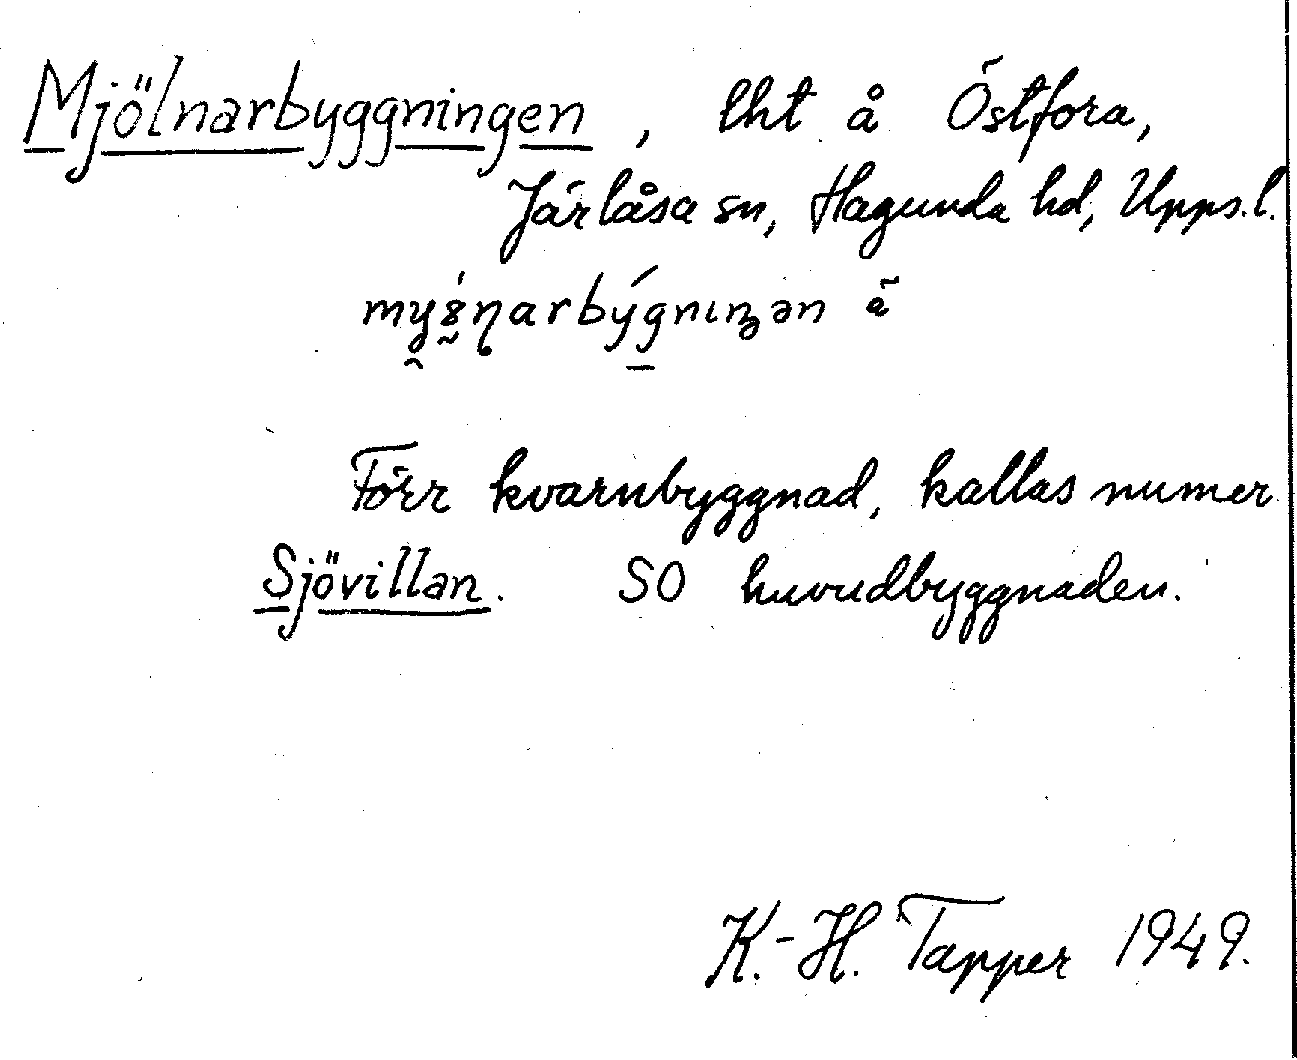 Mjölnarbyggningen, lht å Östfora,
Järlåsa sn, Hagunda hd, Upps.l.
Förr kvarnbyggnad, kallas numer
Sjövillan. SO huvudbyggnaden.
K.-H. Tapper 1949.